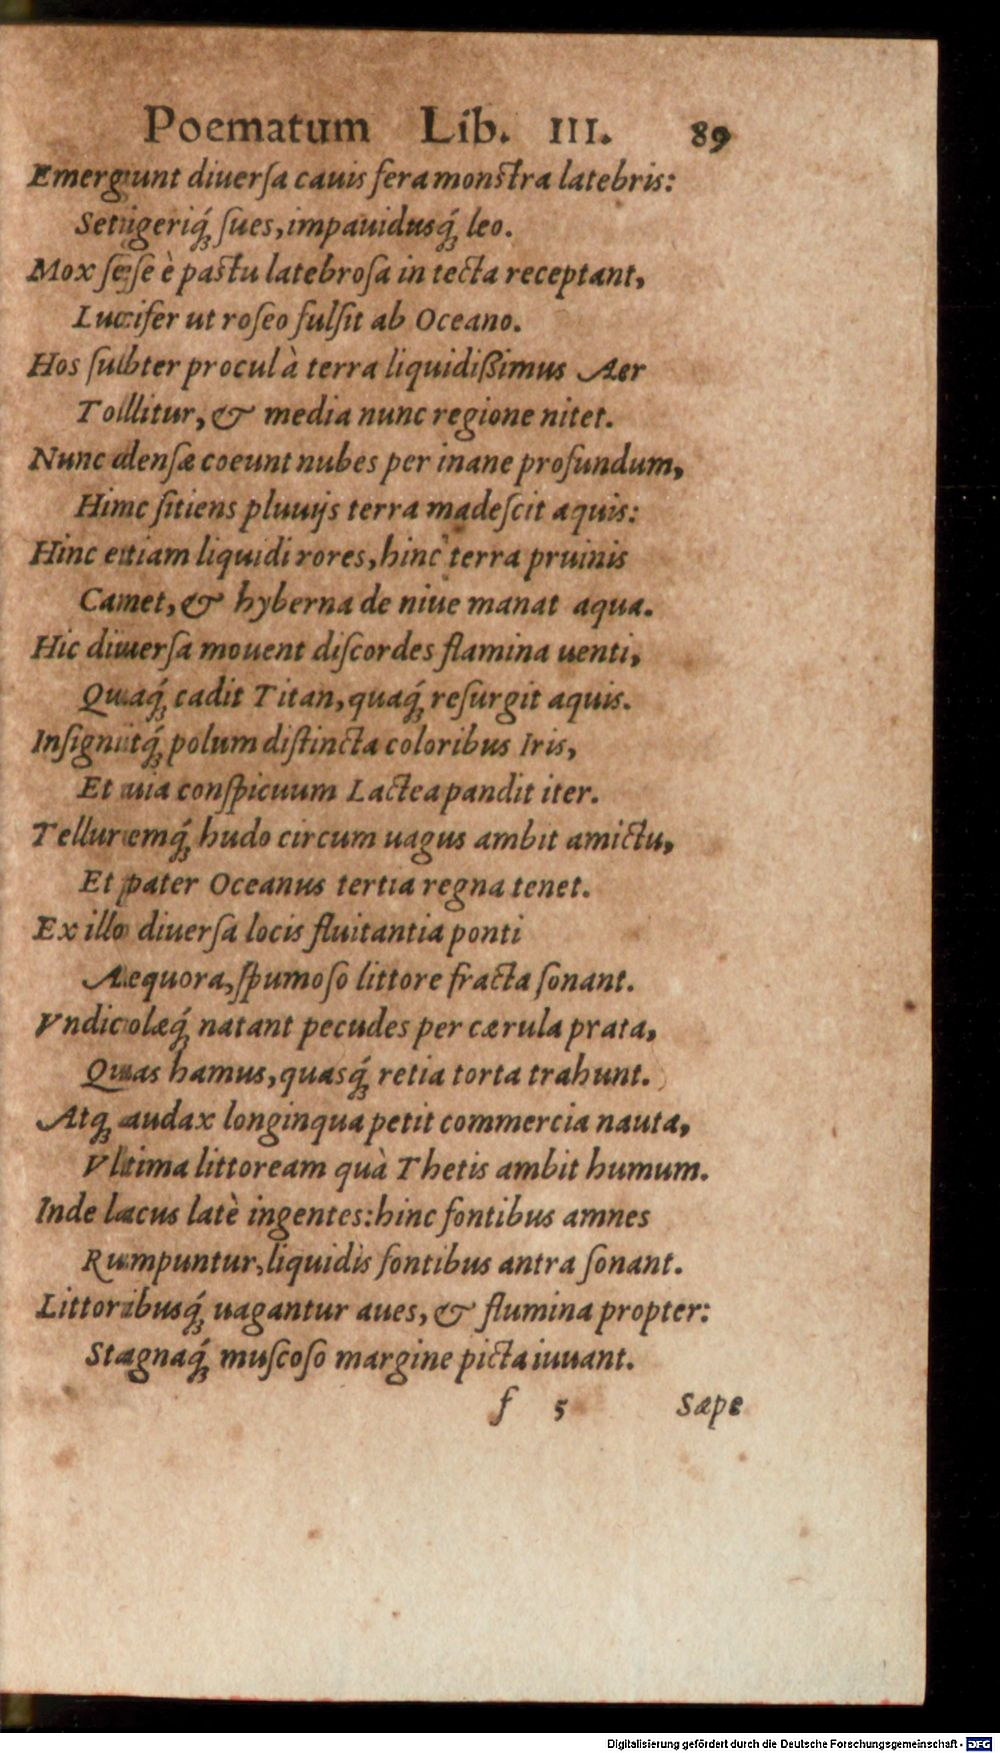 Poematum Lib. III. 89
Emergunt diuerſa cauis fera monſtra latebris:
Setigeriq́ꝫ ſues, impauidusq́ꝫ leo.
Mox ſeſe è paſtu latebroſa in tecta receptant,
Lucifer ut roſeo fulſit ab Oceano.
Hos ſubter procul à terra liquidißimus Aer
Tollitur, & media nunc regione nitet.
Nunc denſæ coeunt nubes per inane profundum,
Hinc ſitiens pluuijs terra madeſcit aquis:
Hinc etiam liquidi rores, hinc terra pruinis
Canet, & hyberna de niue manat aqua.
Hic diuerſa mouent diſcordes flamina uenti,
Quaq́ꝫ cadit Titan, quaq́ꝫ reſurgit aquis.
Inſignitq́ꝫ polum diſtincta coloribus Iris,
Et uia conſpicuum Lactea pandit iter.
Telluremq́ꝫ hudo circum uagus ambit amictu,
Et pater Oceanus tertia regna tenet.
Ex illo diuerſa locis fluitantia ponti
Aequora, ſpumoſo littore fracta ſonant.
Vndicolæq́ꝫ natant pecudes per cærula prata,
Quas hamus, quasq́ꝫ retia torta trahunt.
Atqꝫ audax longinqua petit commercia nauta,
Vltima littoream quà Thetis ambit humum.
Inde lacus latè ingentes: hinc fontibus amnes
Rumpuntur, liquidis fontibus antra ſonant.
Littoribusq́ꝫ uagantur aues, & flumina propter:
Stagnaq́ꝫ muſcoſo margine picta iuuant.
f 5 Sæpe
Digitalisierung gefördert durch die Deutsche Forschungsgemeinschaft - DFG